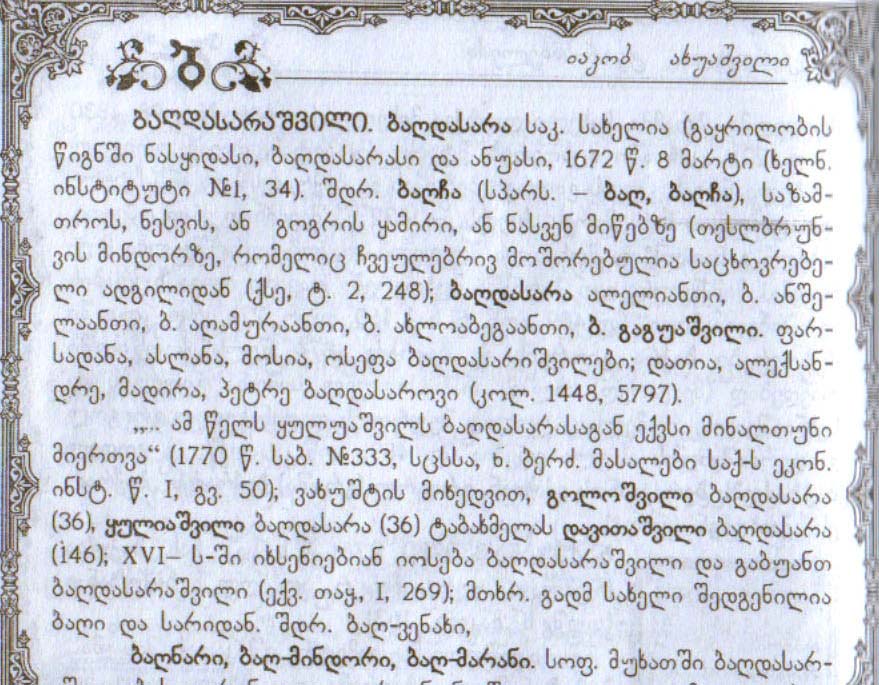 იაკობ ახუაშვილი
ბაღდასარაშვილი. ბაღდასარა საკ. სახელია (გაყრილობის
წიგნში ნასყიდასი, ბაღდასარასი და ანუასი, 1672 წ. 8 მარტი (ხელნ.
ინსტიტუტი №1, 34). შდრ. ბაღჩა (სპარს. – ბაღ, ბაღჩა), საზამ-
თროს, ნესვის, ან გოგრის ყამირი, ან ნასვენ მიწებზე (თესლბრუნ-
ვის მინდორზე, რომელიც ჩვეულებრივ მოშორებულია საცხოვრებე-
ლი ადგილიდან (ქსე, ტ. 2, 248); ბაღდასარა ალელიანთი, ბ. ანშე-
ლაანთი, ბ. აღამურაანთი, ბ. ახლოაბეგაანთი, ბ. გაგუაშვილი. ფარ-
სადანა, ასლანა, მოსია, ოსეფა ბაღდასარიშვილები; დათია, ალექსან-
დრე, მადირა, პეტრე ბაღდასაროვი (კოლ. 1448, 5797).
„... ამ წელს ყულუაშვილს ბაღდასარასაგან ექვსი მინალთუნი
მიერთვა“ (1770 წ. საბ. №333, სცსსა, ნ. ბერძ. მასალები საქ-ს ეკონ.
ინსტ. წ. I, გვ. 50); ვახუშტის მიხედვით, გოლოშვილი ბაღდასარა
(36), ყულიაშვილი ბაღდასარა (36) ტაბახმელას დავითაშვილი ბაღდასარა
(146); XVI– ს-ში იხსენიებიან იოსება ბაღდასარაშვილი და გაბუანთ
ბაღდასარაშვილი (ექვ. თაყ., I, 269); მთხრ. გადმ სახელი შედგენილია
ბაღი და სარიდან. შდრ. ბაღ-ვენახი,
ბაღნარი, ბაღ-მინდორი, ბაღ-მარანი. სოფ. მუხათში ბაღდასარ-